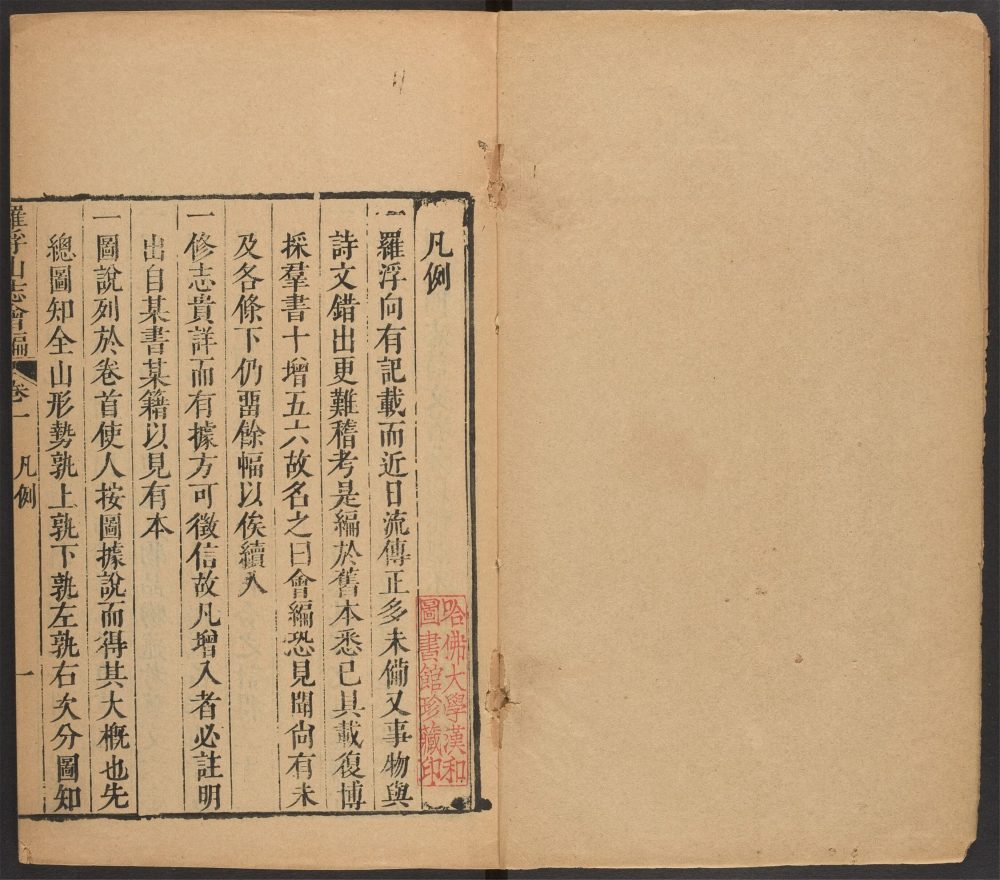 凡例
一羅浮向有記載而近日流傳正多未備又事物與
詩文錯出更難稽考是編於舊本悉已具載復博
採羣書十增五六故名之曰會編恐見聞尙有未
及各條下仍畱餘幅以俟續入
一修志貴詳而有據方可徵信故凡增入者必註明
出自某書某籍以見有本
一圖說列於卷首使人按圖據說而得其大槪也先
總圖知全山形勢孰上孰下孰左孰右次分圖知
羅浮山志會編 卷一 凡例 一
哈佛大學漢和
圖書館珍藏印